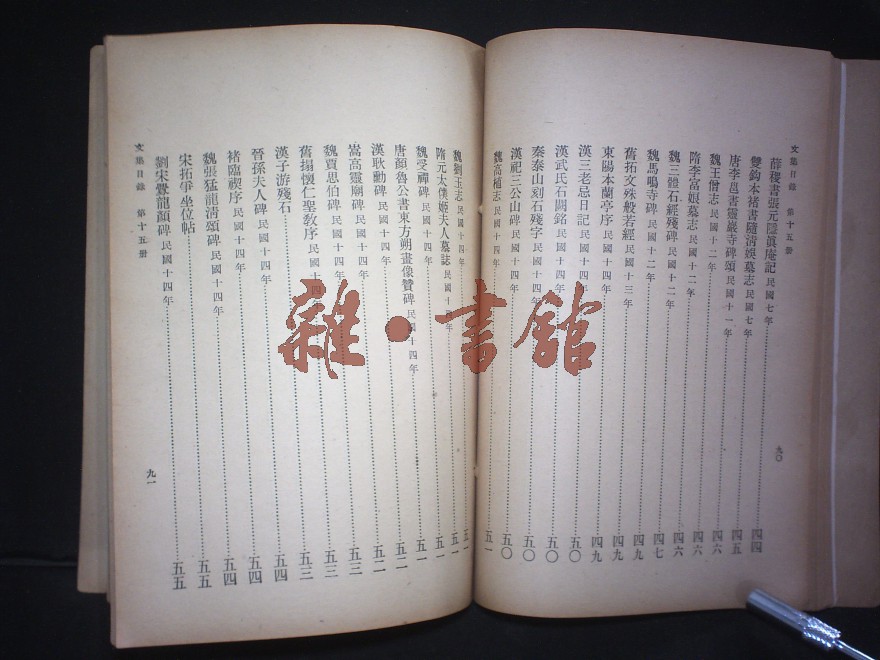 文集目錄 第十五册
薛稷書張元隱眞庵記民國七年 四四
雙鈎本褚書隨淸娛墓志民國七年 四四
唐李邕書靈巖寺碑頌民國十一年 四五
魏王僧志民國十二年 四六
隋李富娘墓志民國十二年 四六
魏三體石經殘碑民國十二年 四六
魏馬鳴寺碑民國十二年 四七
舊拓文殊般若經民國十三年 四九
東陽本蘭亭序民國十四年 四九
漢三老忌日記民國十四年 四九
漢武氏石闕銘民國十四年 五〇
秦泰山刻石殘字民國十四年 五〇
漢祀三公山碑民國十四年 五〇
魏高植志民國十四年 五一
九〇
魏劉玉志民國十四年 五一
隋元太僕姬夫人墓誌民國十 年 五一
魏受禪碑民國十四年 五一
唐顏魯公書東方朔畫像贊碑民國十四年 五二
漢耿勳碑民國十四年 五二
嵩高靈廟碑民國十四年 五三
魏賈思伯碑民國十四年 五三
舊搨懷仁聖敎序民國十四年 五三
漢子游殘石 五四
晉孫夫人碑民國十四年 五四
褚臨禊序民國十四年 五四
魏張猛龍淸頌碑民國十四年 五五
宋拓爭坐位帖 五五
劉宋爨龍顏碑民國十四年 五五
文集目錄 第十五册
九一
雜·書館